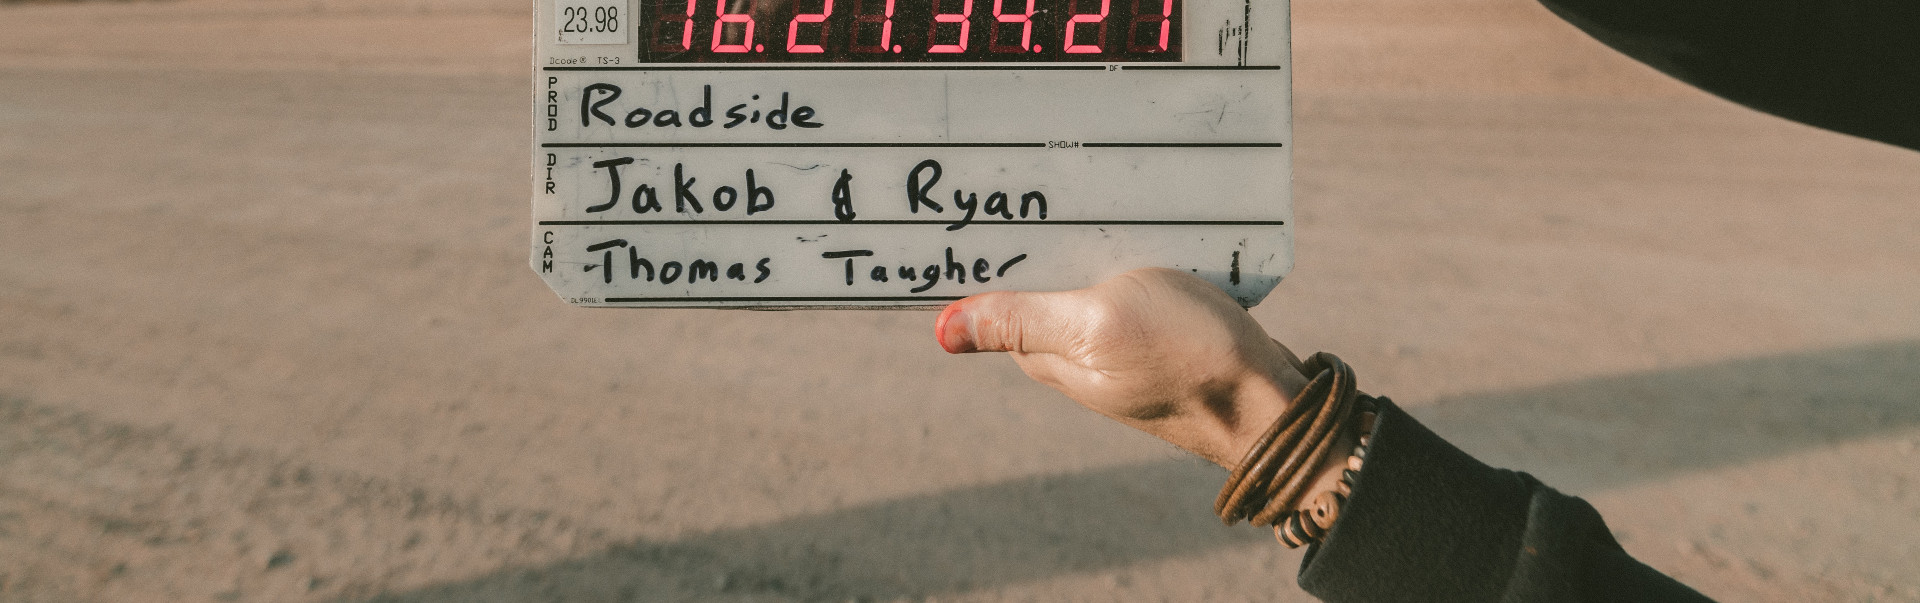 23.98
16.21.34.21
Dcode® TS-3
DF
PROD
Roadside
SHOW#
DIR
Jakob & Ryan
CAM
Thomas Taugher